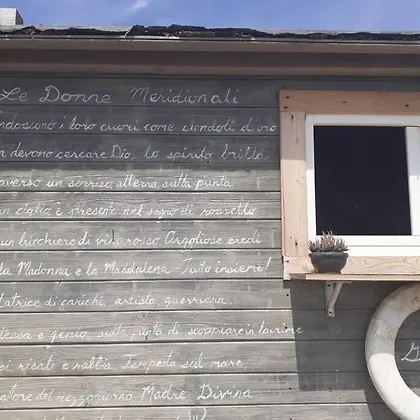 Le Donne Meridionali
ndossono i loro cuori come ciondoli d'oro
n devono cercare Dio, lo spirito brilla
averso un sorriso, atterra sulla punta
un ciglio, è presente nel segno di rossetto
un bicchiere di vino rosso. Orgogliose eredi
la Madonna e la Maddalena - Tutto insieme!
latrice di carichi, artista, guerriera.
tessa e genio, sulla punta di scoppiare in lacrime
si, risate e rabbia. Tempesta sul mare
atore del mezzogiorno Madre Divina
G